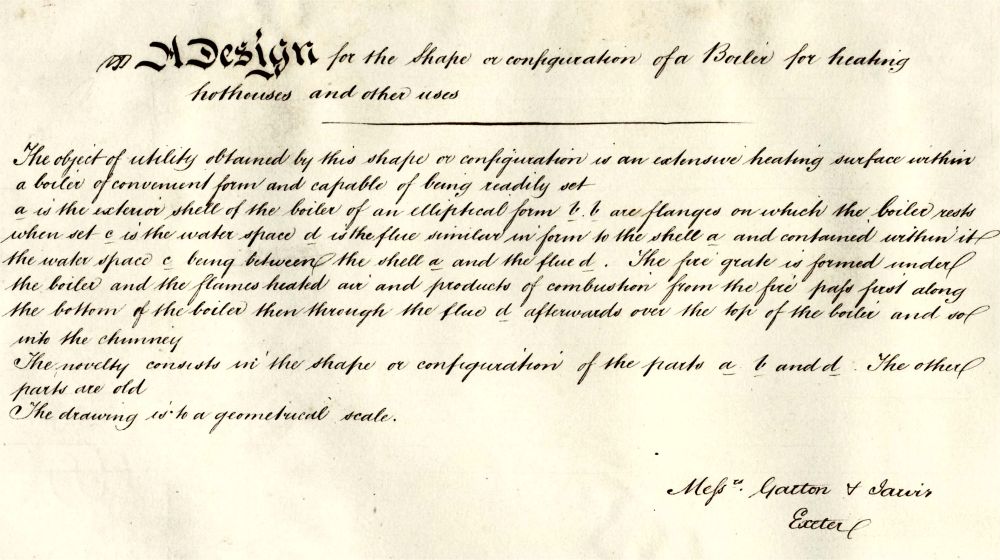 A Design for the Shape or configuration of a Boiler for heating
hothouses and other uses
The object of utility obtained by this shape or configuration is an extensive heating surface within
a boiler of convenient form and capable of being readily set
a is the exterior shell of the boiler of an elliptical form b. b are flanges on which the boiler rests
when set c is the water space d is the flue similar in form to the shell a and contained within it
the water space c being between the shell a and the flue d. The fire grate is formed under
the boiler and the flames heated air and products of combustion from the fire paſs first along
the bottom of the boiler then through the flue d afterwards over the top of the boiler and so
into the chimney
The novelty consists in the shape or configuration of the parts a b and d. The other
parts are old
The drawing is to a geometrical scale.
Meſsrs. Garton & Jarvis
Exeter